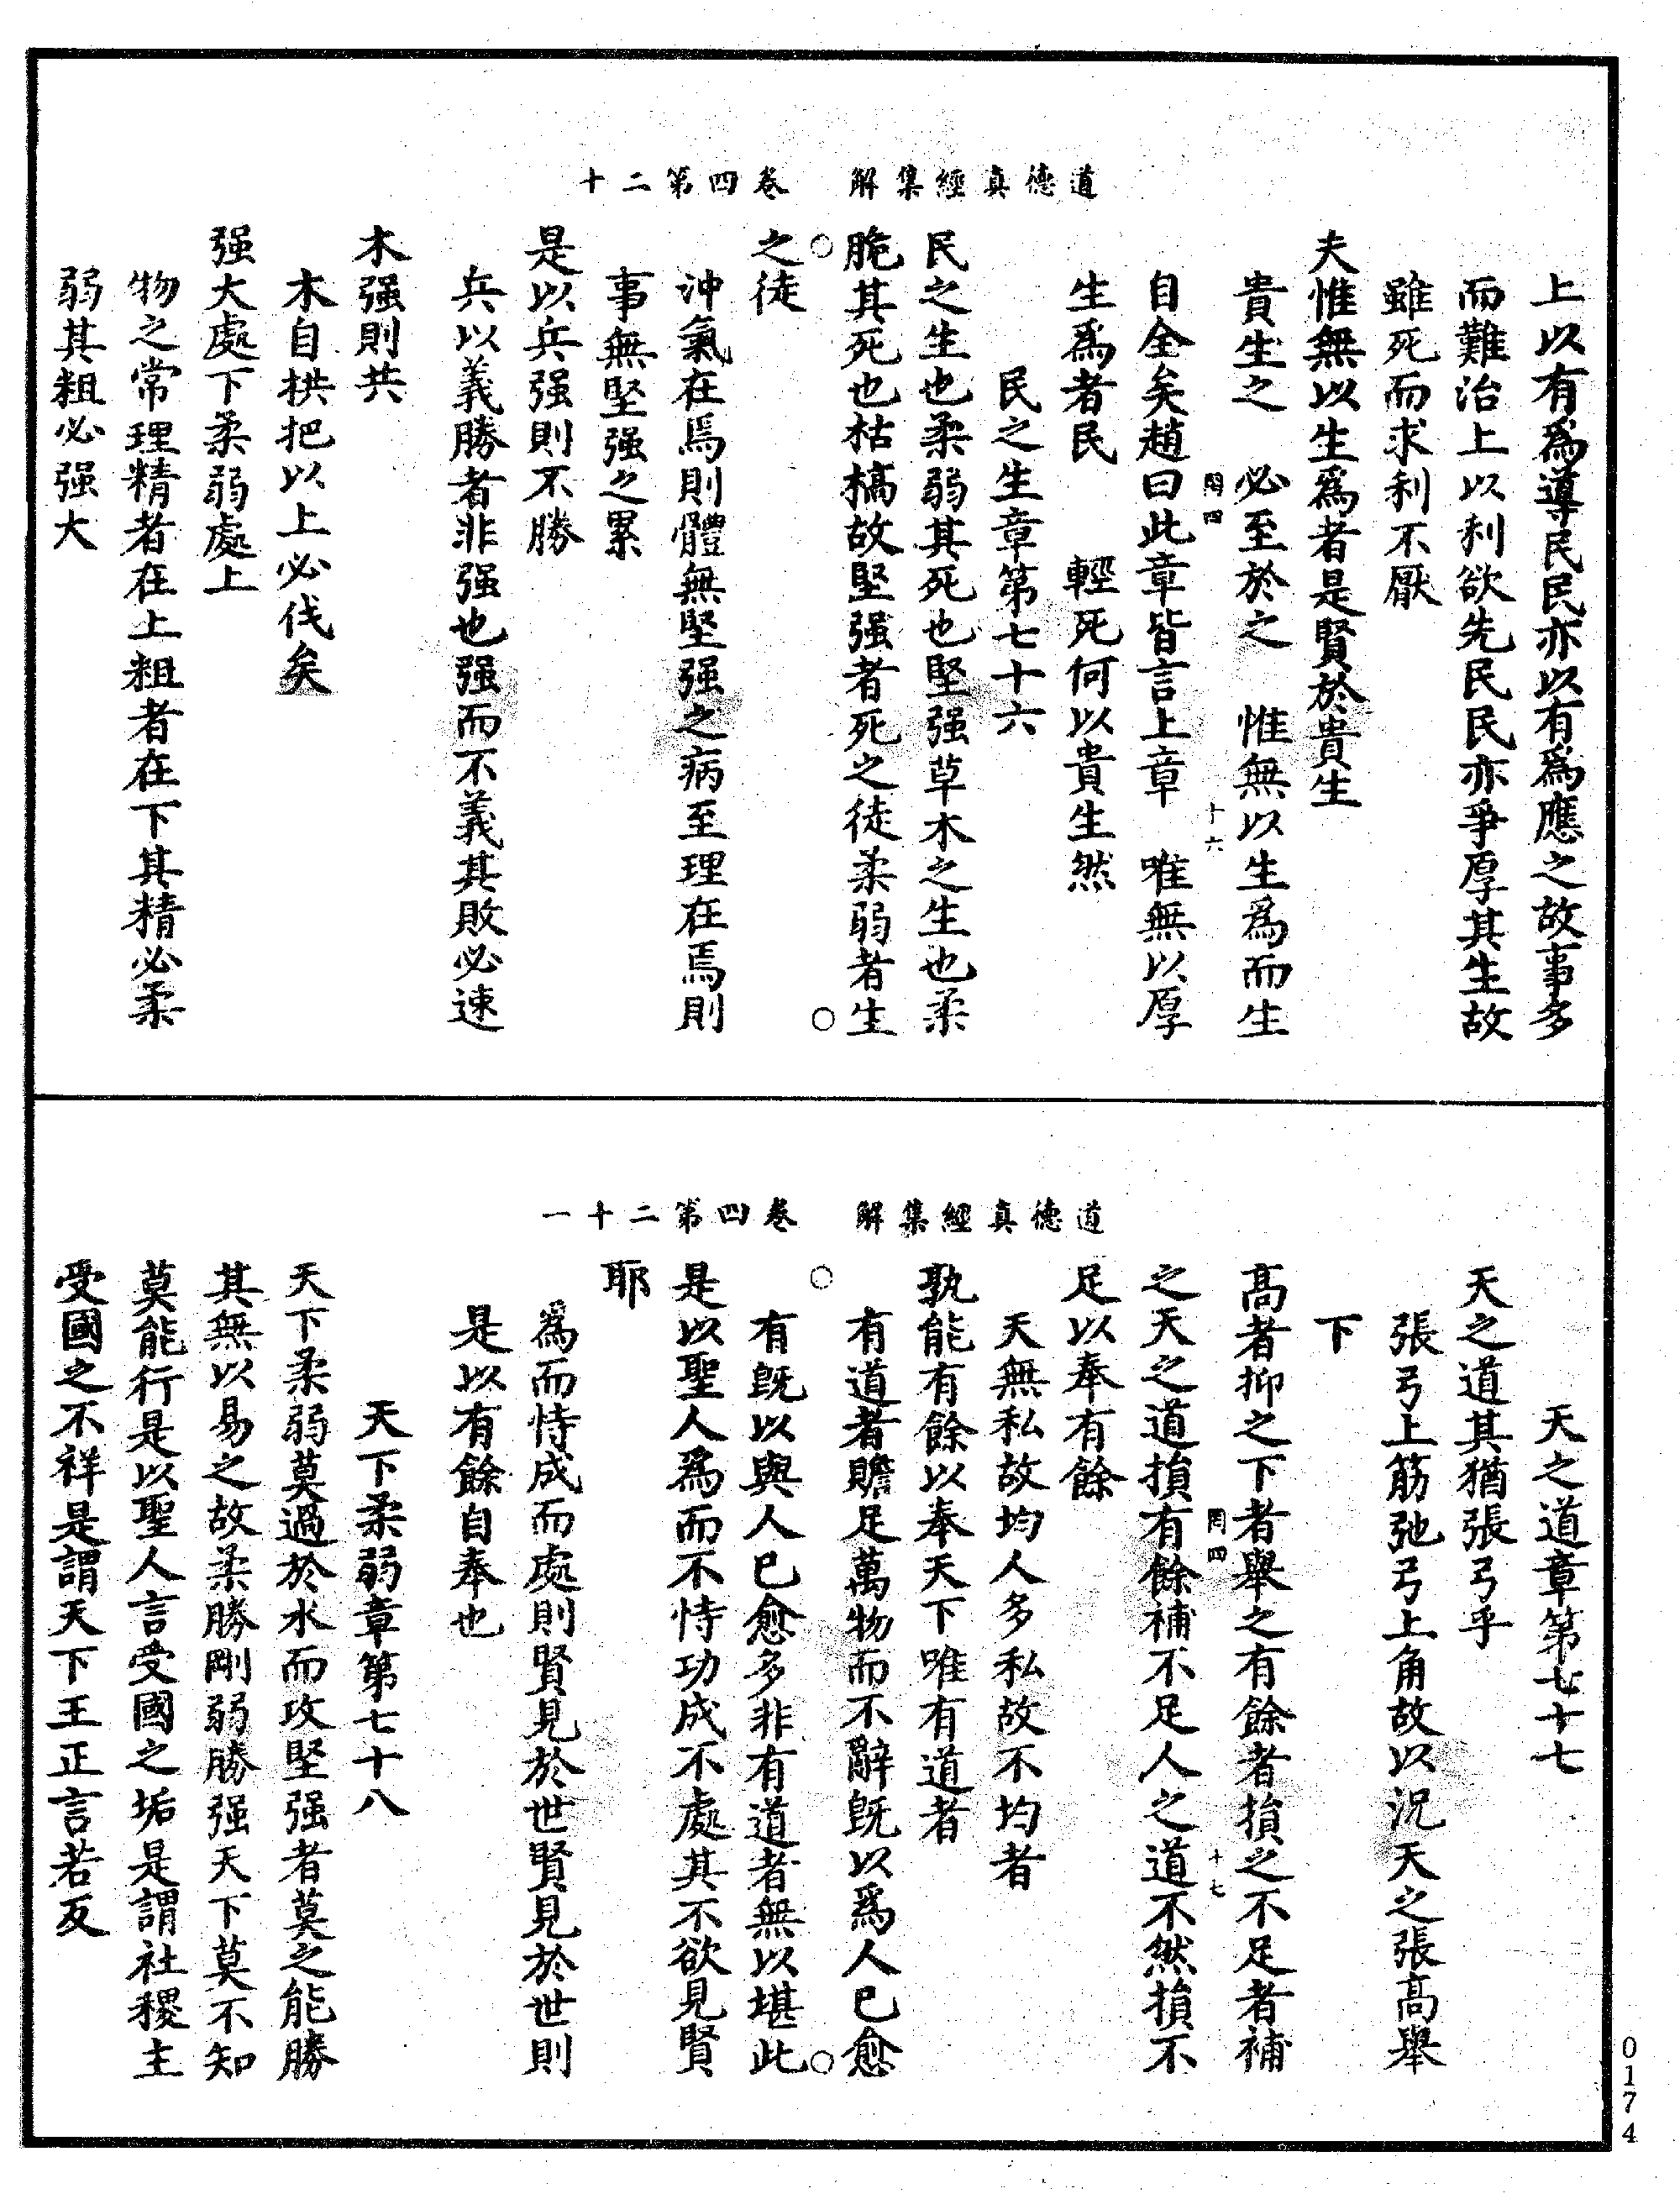 道德真經集解　卷四第二十
上以有爲導民民亦以有爲應之故事多
而難治上以利欲先民民亦爭厚其生故
雖死而求利不厭
夫惟無以生爲者是賢於貴生
貴生之　必至於之　惟無以生爲而生
罔四　十六
自全矣趙曰此章皆言上章　唯無以厚
生爲者民　　輕死何以貴生然
民之生章第七十六
民之生也柔弱其死也堅强草木之生也柔
脆其死也枯槁故堅强者死之徒柔弱者生
之徒
沖氣在焉則體無堅强之病至理在焉則
事無堅强之累
是以兵强則不勝
兵以義勝者非强也强而不義其敗必速
木强則共
木自拱把以上必伐矣
强大處下柔弱處上
物之常理精者在上粗者在下其精必柔
弱其粗必强大
道德真經集解　卷四第二十一
天之道章第七十七
天之道其猶張弓乎
張弓上筋弛弓上角故以況天之張高舉
下
高者抑之下者舉之有餘者損之不足者補
罔四　十七
之天之道損有餘補不足人之道不然損不
足以奉有餘
天無私故均人多私故不均者
孰能有餘以奉天下唯有道者
有道者贍足萬物而不辭旣以爲人已愈
有旣以與人已愈多非有道者無以堪此
是以聖人爲而不恃功成不處其不欲見賢
耶
爲而恃成而處則賢見於世賢見於世則
是以有餘自奉也
天下柔弱章第七十八
天下柔弱莫過於水而攻堅强者莫之能勝
其無以易之故柔勝剛弱勝强天下莫不知
莫能行是以聖人言受國之垢是謂社稷主
受國之不祥是謂天下王正言若反
0174